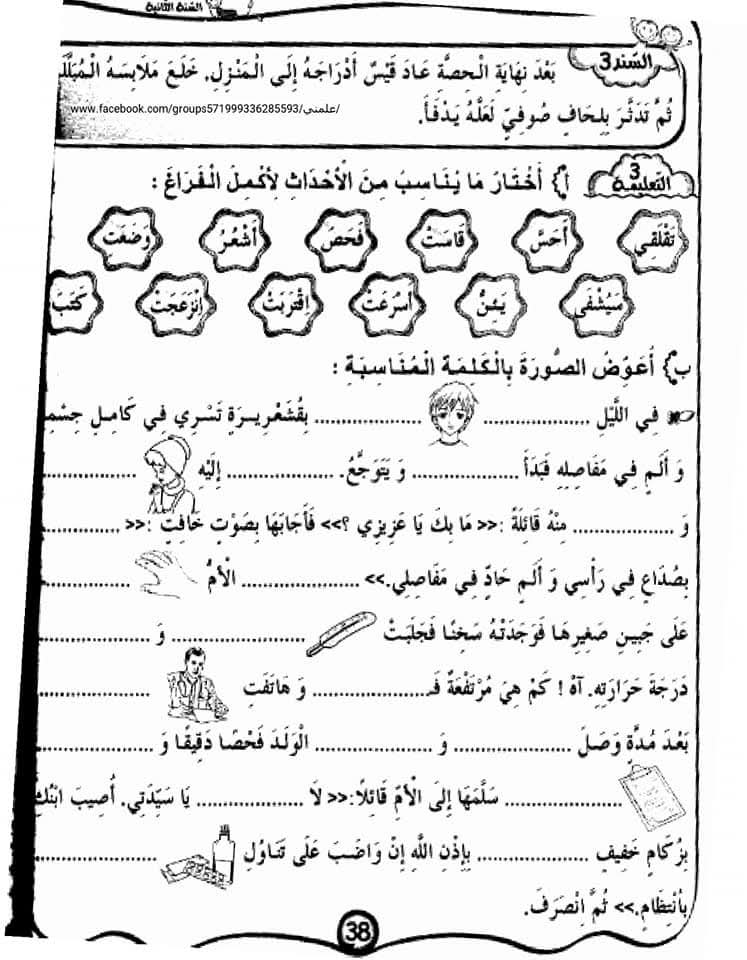 السنة الثانية
السّند3
بَعْدَ نِهَايَةِ الْحِصَّةِ عَادَ قَيْسٌ أَدْرَاجَهُ إِلَى الْمَنْزِلِ. خَلَعَ مَلَابِسَهُ
ثُمَّ تَدَثَّرَ بِلِحَافٍ صُوفِيٍّ لَعَلَّهُ يَدْفَأُ.
www.facebook.com/groups571999336285593/علمني/
التعليمة 3
أ) أَخْتَارُ مَا يُنَاسِبُ مِنَ الْأَحْدَاثِ لِأُكْمِلَ الْفَرَاغَ :
تَقْلَقِي أَحَسَّ قَاسَتْ فَحَصَ أَشْعُرُ وَضَعَتْ
سَيُشْفَى يَئِنُّ أَسْرَعَتْ اِقْتَرَبَتْ اِنْزَعَجَتْ كَتَبَ
ب) أُعَوِّضُ الصُّورَةَ بِالْكَلِمَةِ الْمُنَاسِبَةِ :
فِي اللَّيْلِ .................... .................... بِقُشَعْرِيرَةٍ تَسْرِي فِي كَامِلِ جِسْمِهِ
وَ أَلَمٍ فِي مَفَاصِلِهِ فَبَدَأَ .................... وَ يَتَوَجَّعُ. .................... إِلَيْهِ ....................
وَ .................... مِنْهُ قَائِلَةً :<< مَا بِكَ يَا عَزِيزِي ؟>> فَأَجَابَهَا بِصَوْتٍ خَافِتٍ :<< ....................
بِصُدَاعٍ فِي رَأْسِي وَ أَلَمٍ حَادٍّ فِي مَفَاصِلِي.>> .................... الْأُمُّ ....................
عَلَى جَبِينِ صَغِيرِهَا فَوَجَدَتْهُ سَخِنًا فَجَلَبَتْ .................... وَ ....................
دَرَجَةَ حَرَارَتِهِ. آهُ ! كَمْ هِيَ مُرْتَفِعَةٌ فَـ.................... وَ هَاتَفَتِ ....................
بَعْدَ مُدَّةٍ وَصَلَ .................... وَ .................... الْوَلَدَ فَحْصًا دَقِيقًا وَ ....................
.................... سَلَّمَهَا إِلَى الْأُمِّ قَائِلًا:<< لَا .................... يَا سَيِّدَتِي. أُصِيبَ ابْنُكِ
بِزُكَامٍ خَفِيفٍ .................... بِإِذْنِ اللَّهِ إِنْ وَاضَبَ عَلَى تَنَاوُلِ ....................
بِانْتِظَامٍ.>> ثُمَّ اِنْصَرَفَ.
38